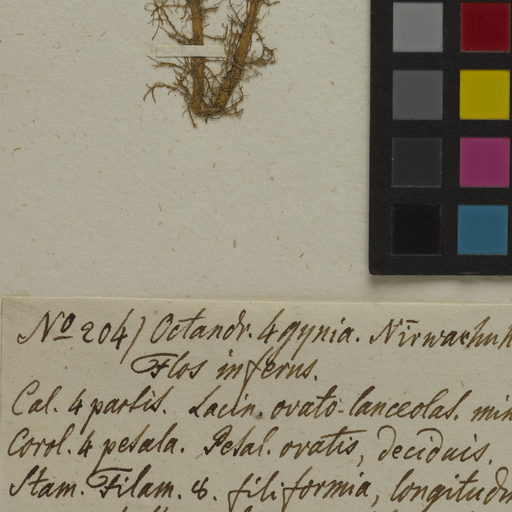 No 204) Octandr. 4gynia. Nirwachuh
Flos inferus.
Cal. 4 partis. Lacin. ovato-lanceolas. min
Corol. 4 petala. Petal. ovatis, deciduis.
Stam. Filam. 8. filiformia, longitudin